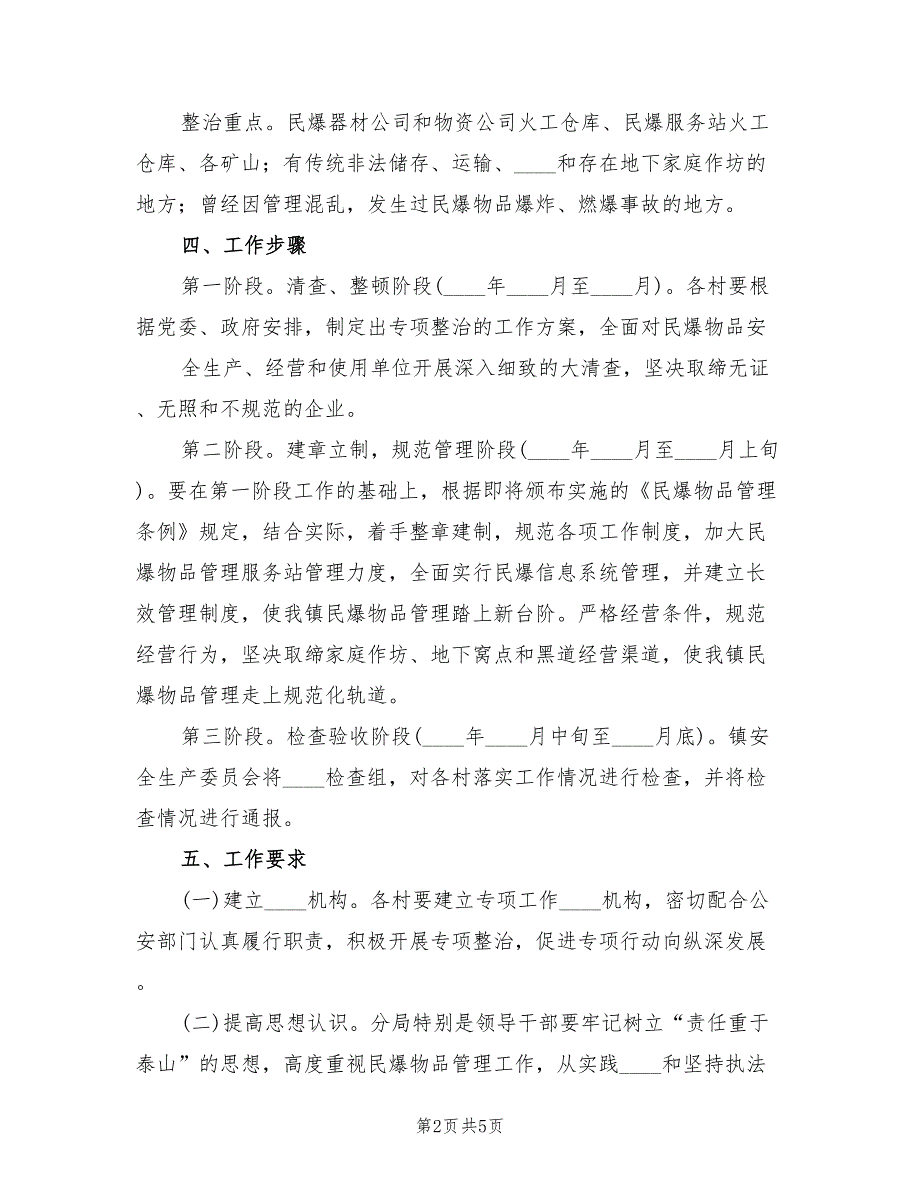 整治重点。民爆器材公司和物资公司火工仓库、民爆服务站火工
仓库、各矿山；有传统非法储存、运输、____和存在地下家庭作坊的
地方；曾经因管理混乱，发生过民爆物品爆炸、燃爆事故的地方。
四、工作步骤
第一阶段。清查、整顿阶段(____年____月至____月)。各村要根
据党委、政府安排，制定出专项整治的工作方案，全面对民爆物品安
全生产、经营和使用单位开展深入细致的大清查，坚决取缔无证
、无照和不规范的企业。
第二阶段。建章立制，规范管理阶段(____年____月至____月上旬
)。要在第一阶段工作的基础上，根据即将颁布实施的《民爆物品管理
条例》规定，结合实际，着手整章建制，规范各项工作制度，加大民
爆物品管理服务站管理力度，全面实行民爆信息系统管理，并建立长
效管理制度，使我镇民爆物品管理踏上新台阶。严格经营条件，规范
经营行为，坚决取缔家庭作坊、地下窝点和黑道经营渠道，使我镇民
爆物品管理走上规范化轨道。
第三阶段。检查验收阶段(____年____月中旬至____月底)。镇安
全生产委员会将____检查组，对各村落实工作情况进行检查，并将检
查情况进行通报。
五、工作要求
(一)建立____机构。各村要建立专项工作____机构，密切配合公
安部门认真履行职责，积极开展专项整治，促进专项行动向纵深发展
。
(二)提高思想认识。分局特别是领导干部要牢记树立“责任重于
泰山”的思想，高度重视民爆物品管理工作，从实践____和坚持执法
第2页 共5页